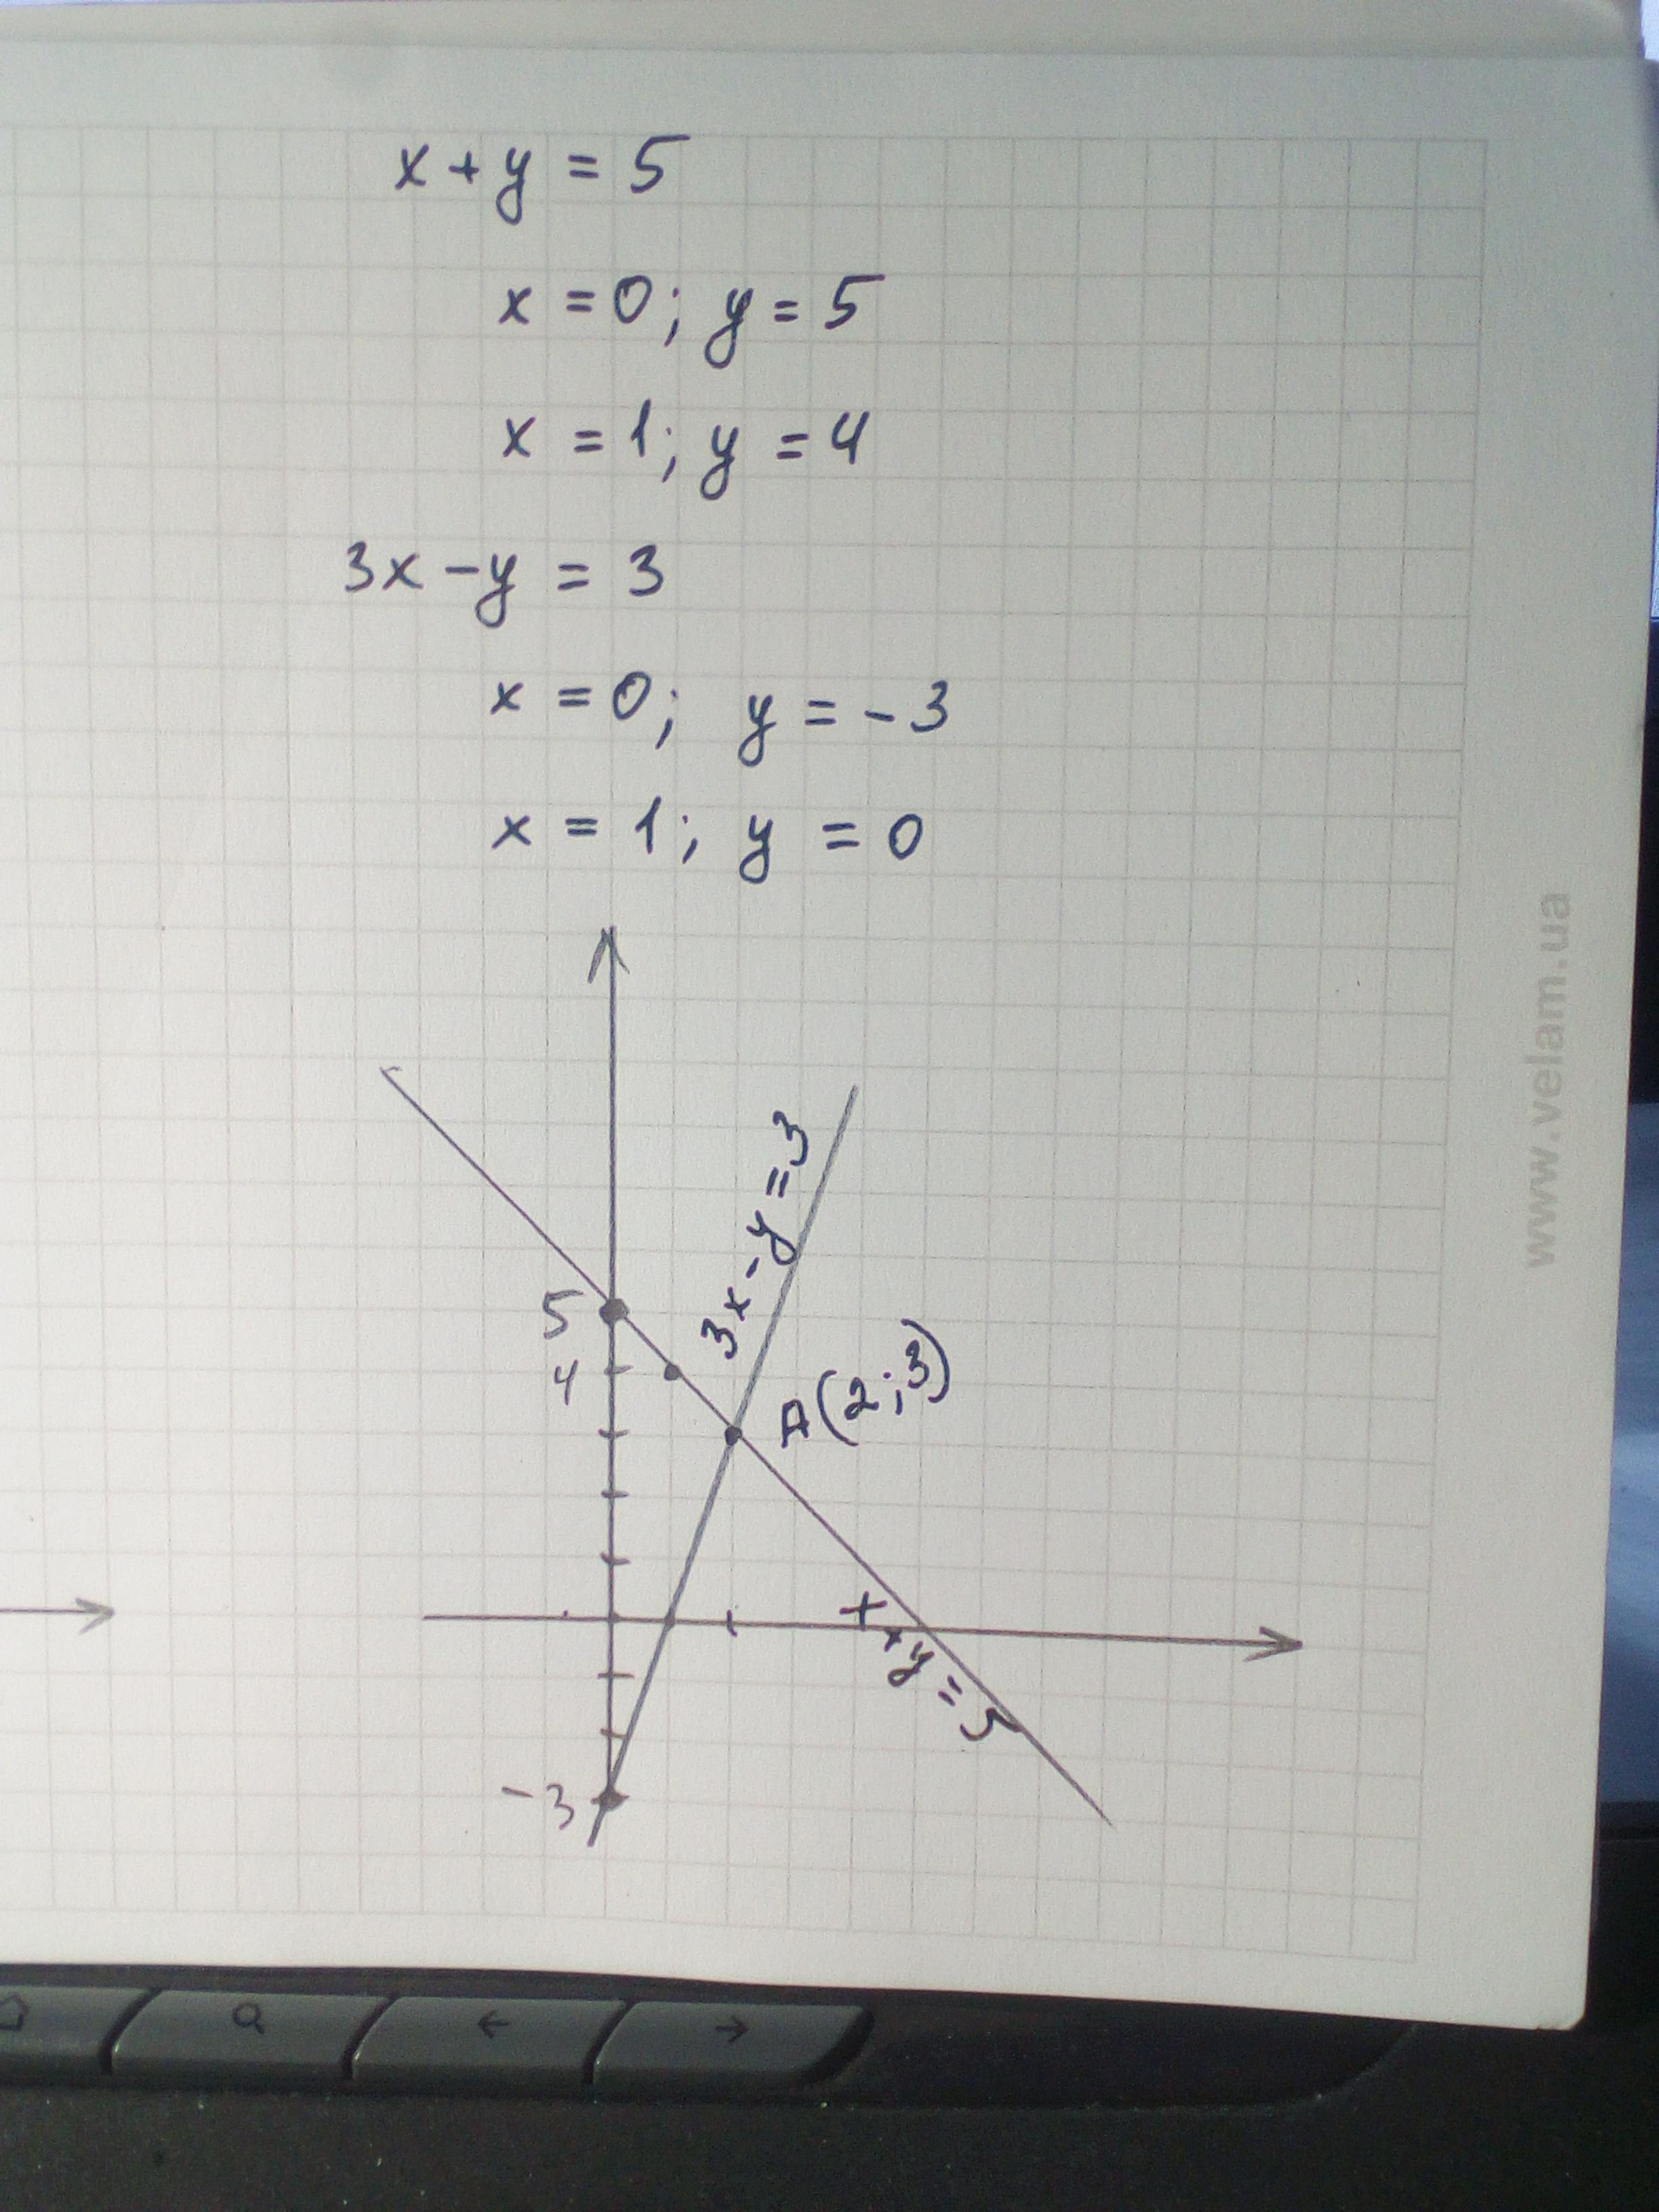 x + y = 5
x = 0; y = 5
x = 1; y = 4
3x - y = 3
x = 0; y = -3
x = 1; y = 0
3x - y = 3
5
4
A(2;3)
x + y = 5
-3
www.velam.ua